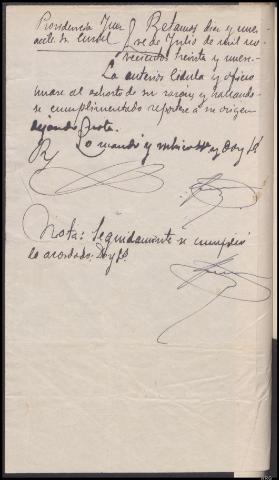 Providencia Juez Retamos diez y nueve
de Julio de mil no-
vecientos treinta y nueve.
La anterior cédula y oficio
unase al exhorto de su razón y hallando-
se cumplimentado reportese a su origen
dejando nota.
Lo mandó y rubrica Doy fé
Nota: Seguidamente se cumplió
lo acordado. Doy fé.